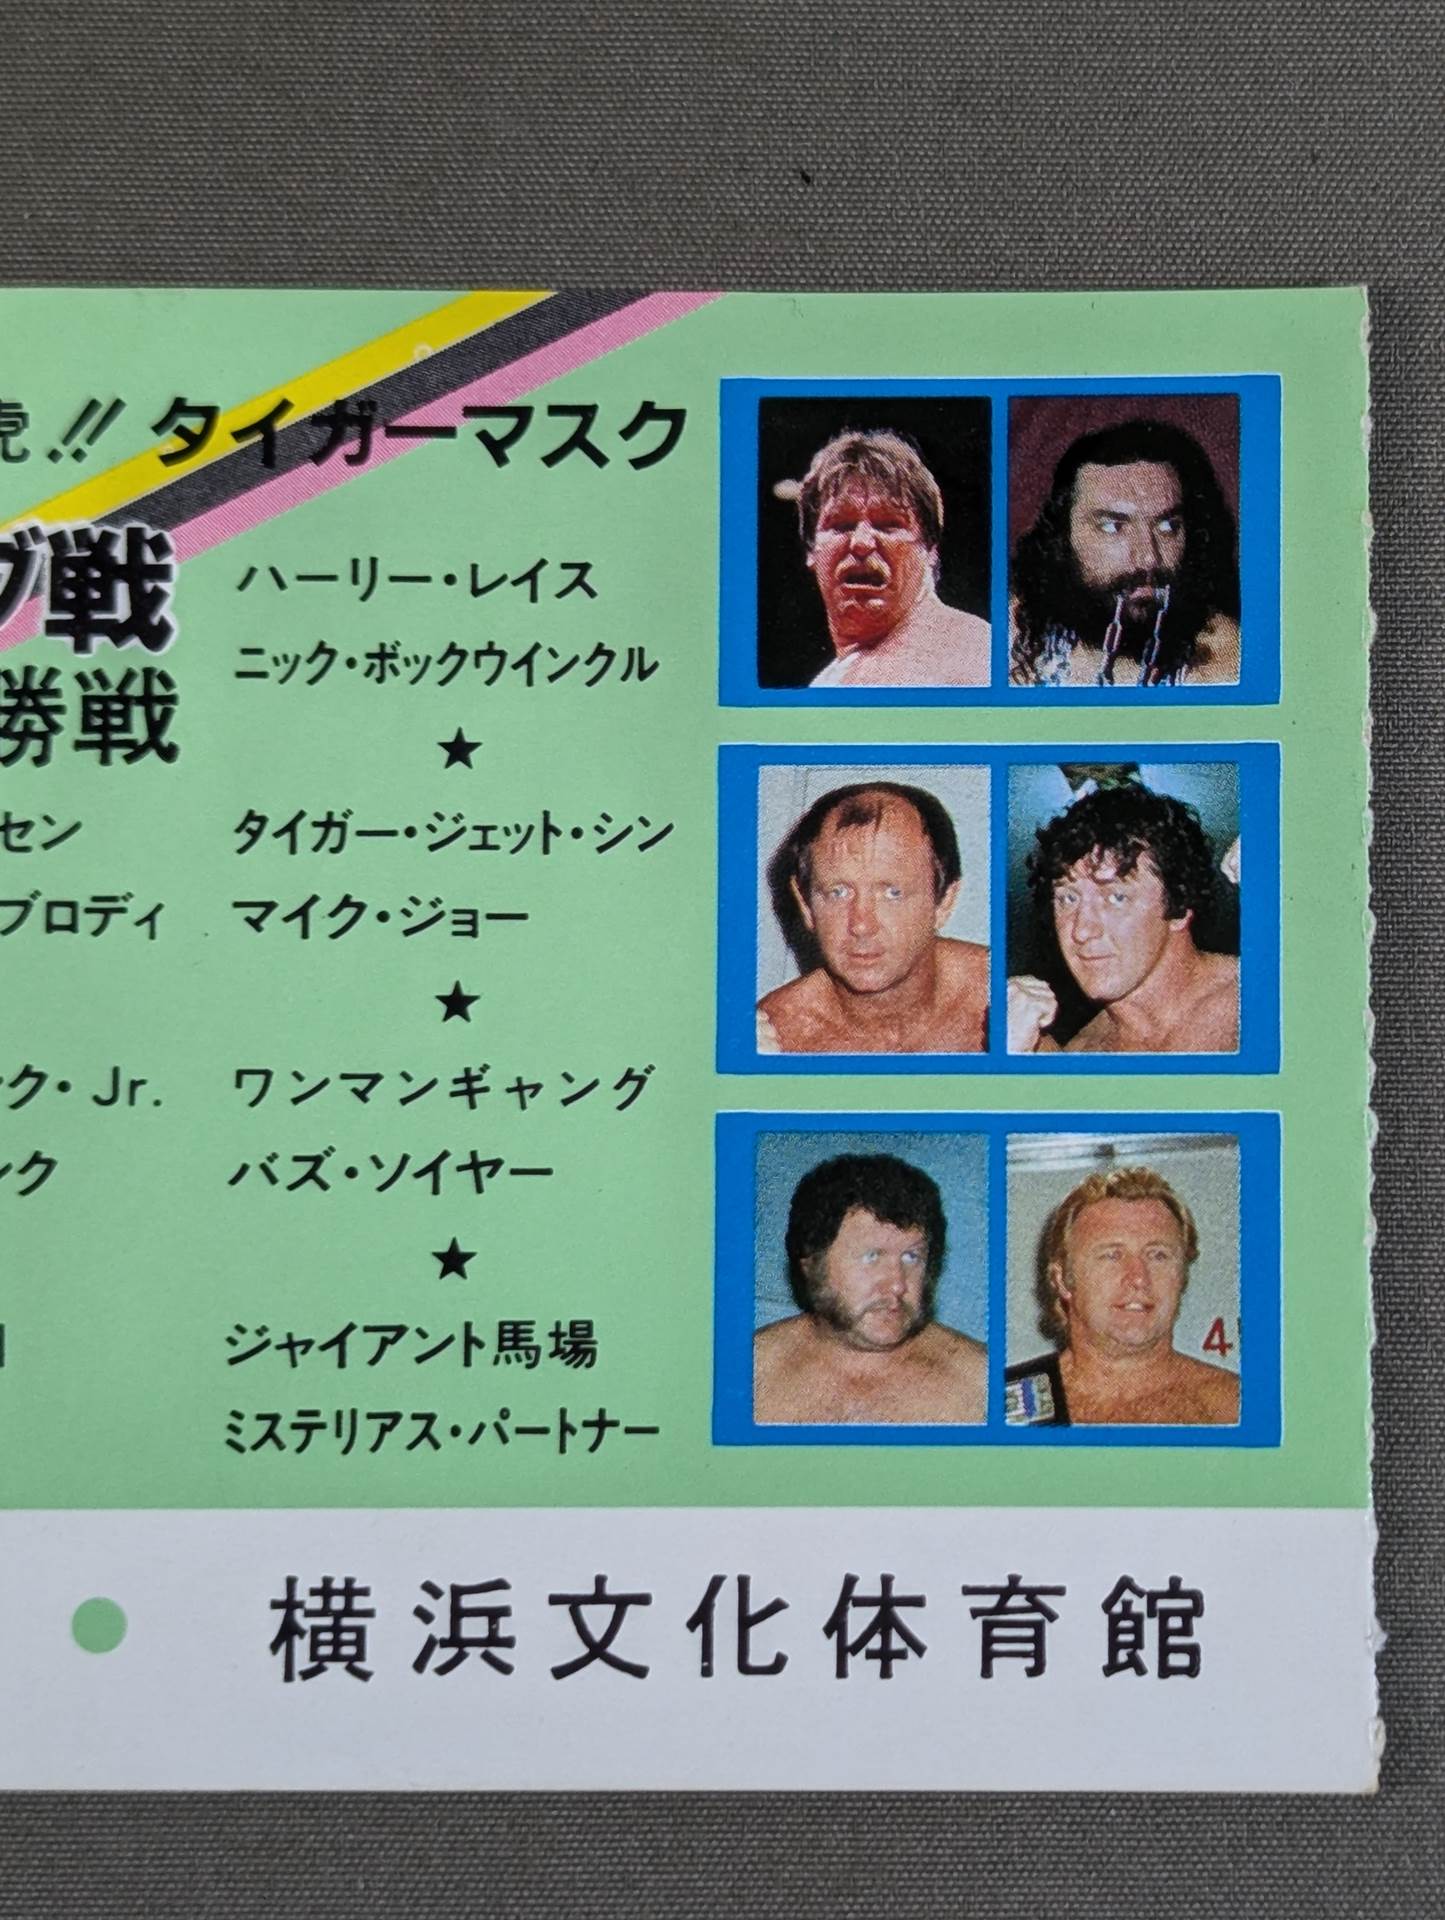 虎!! タイガーマスク
グ戦
勝戦
ハーリー・レイス
ニック・ボックウインクル
★
セン
タイガー・ジェット・シン
ブロディ
マイク・ジョー
★
ク・Jr.
ワンマンギャング
ンク
バズ・ソイヤー
★
ジャイアント馬場
ミステリアス・パートナー
4
● 横浜文化体育館